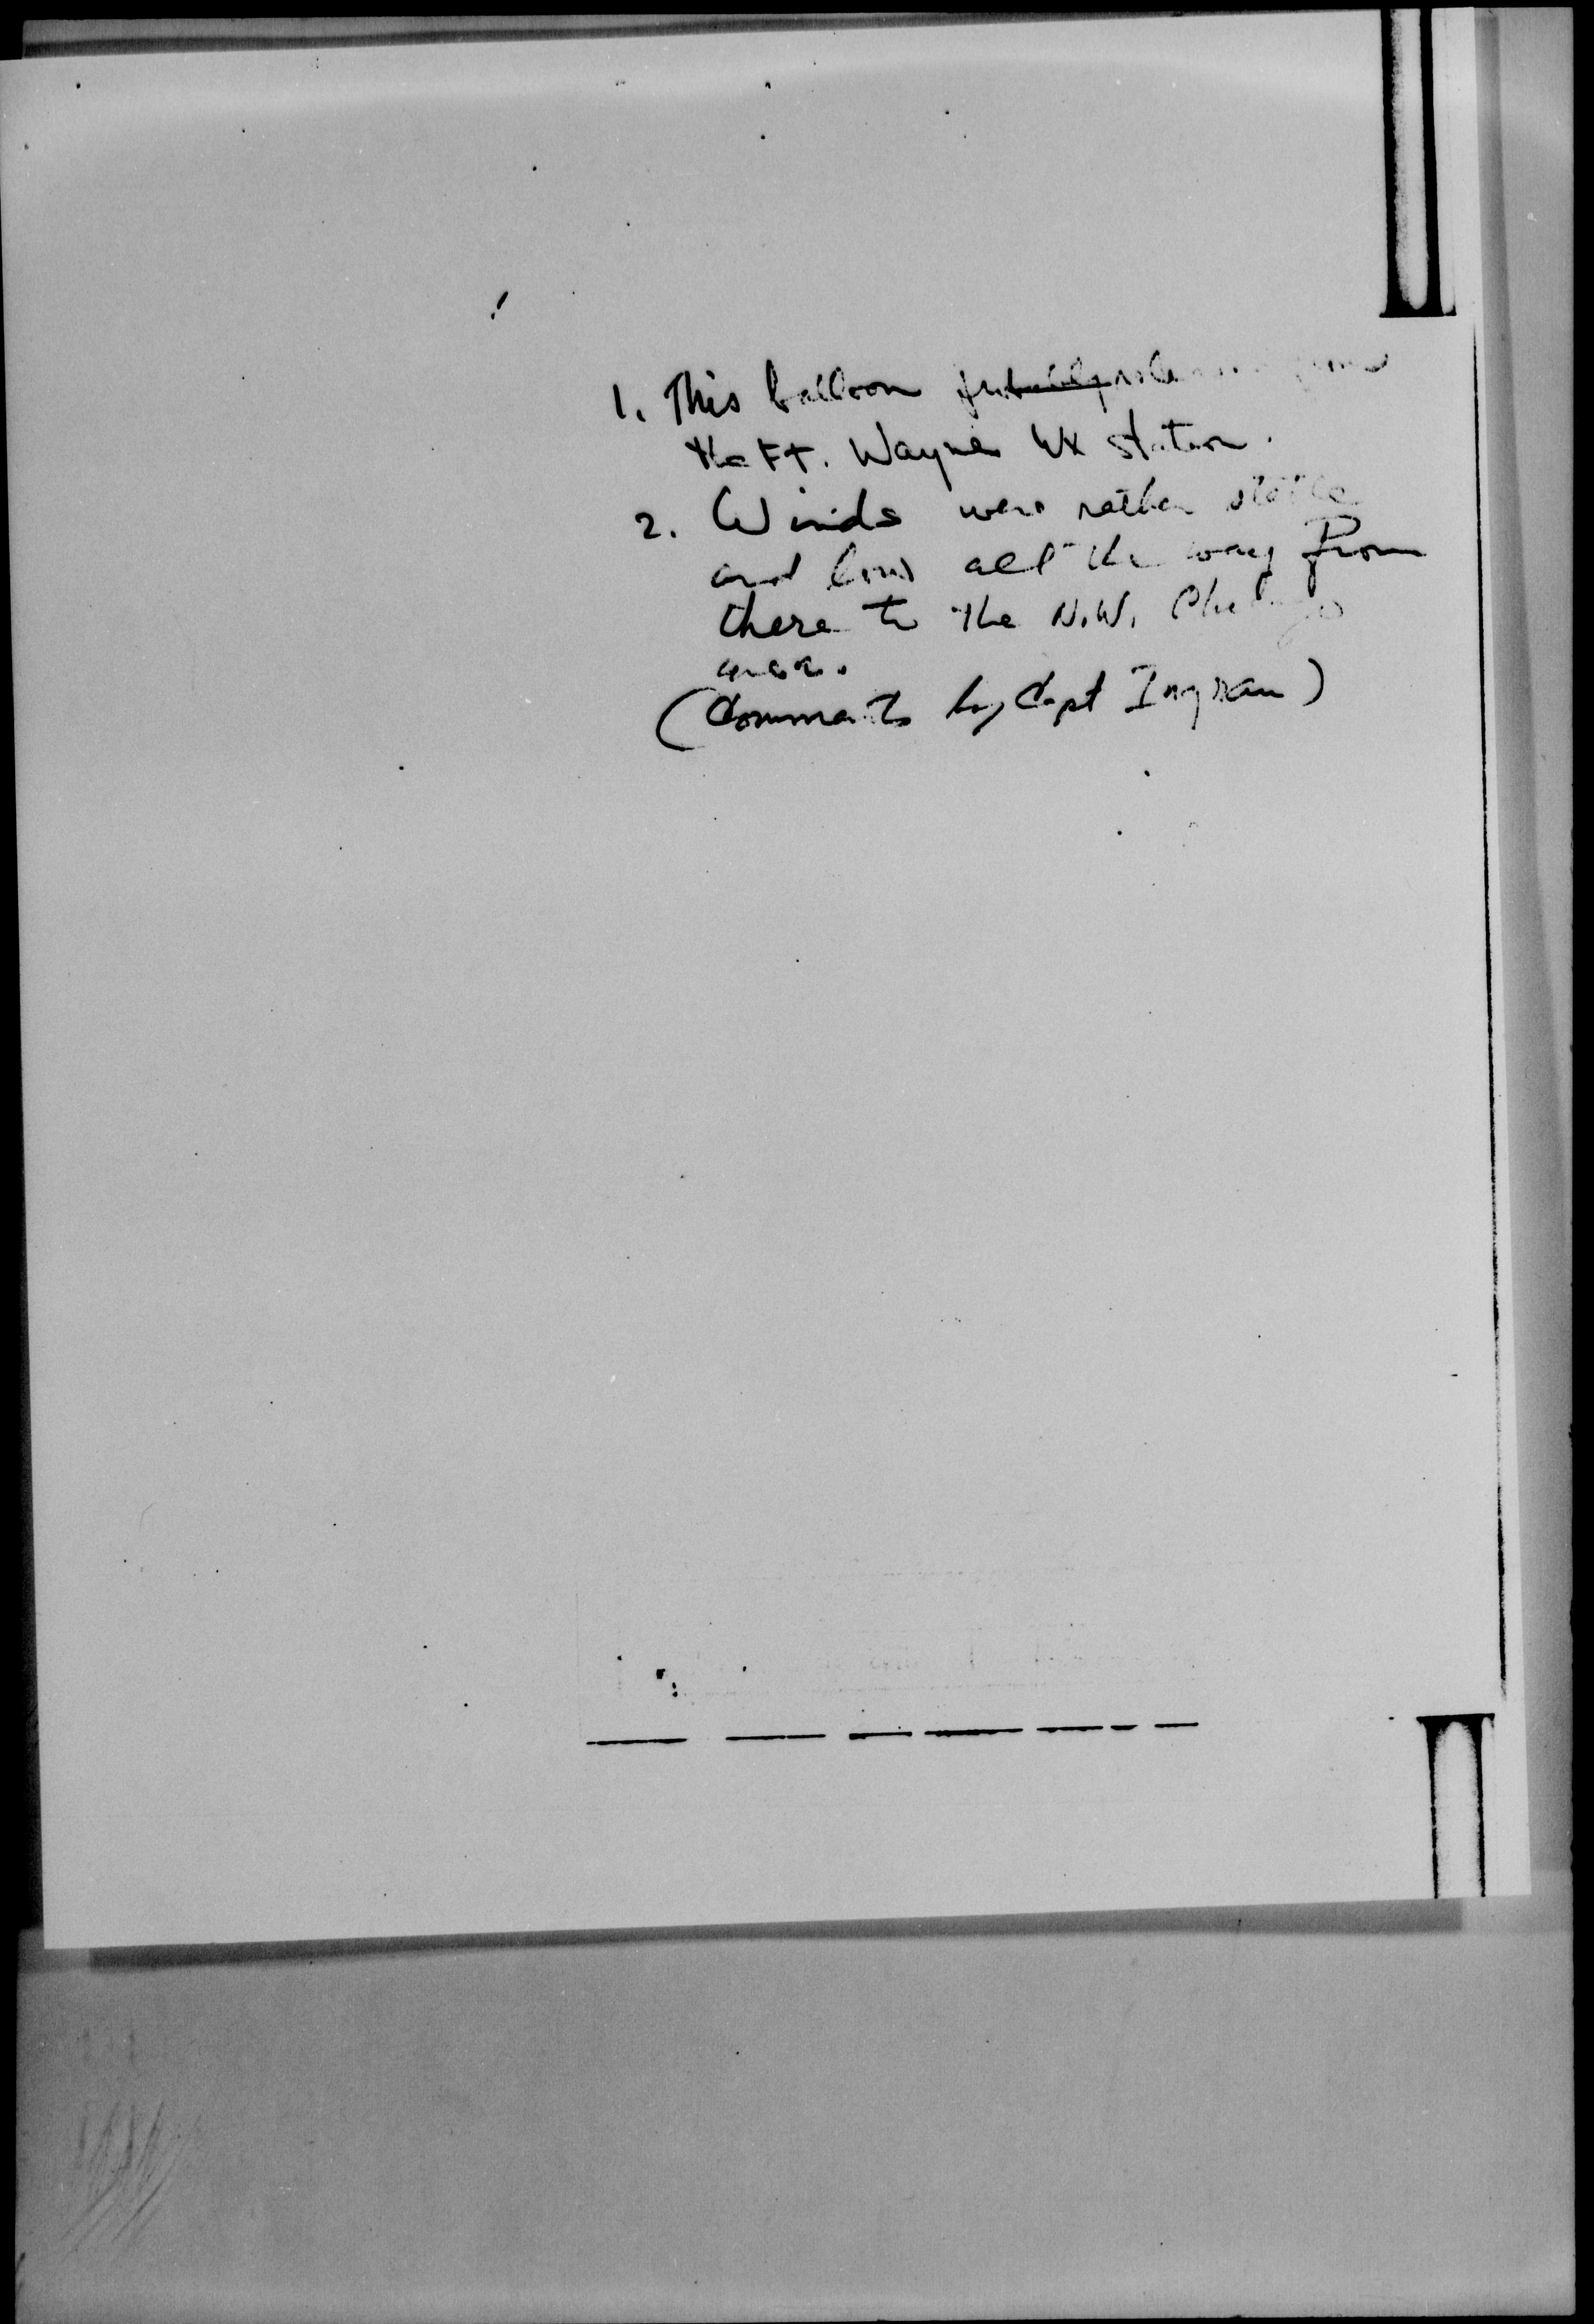 1. This balloon ~~probably~~ from
the Ft. Wayne WX station.
2. Winds were rather stable
and low all the way from
there to the N.W. Chicago
area.
(Comments by Capt Ingram)